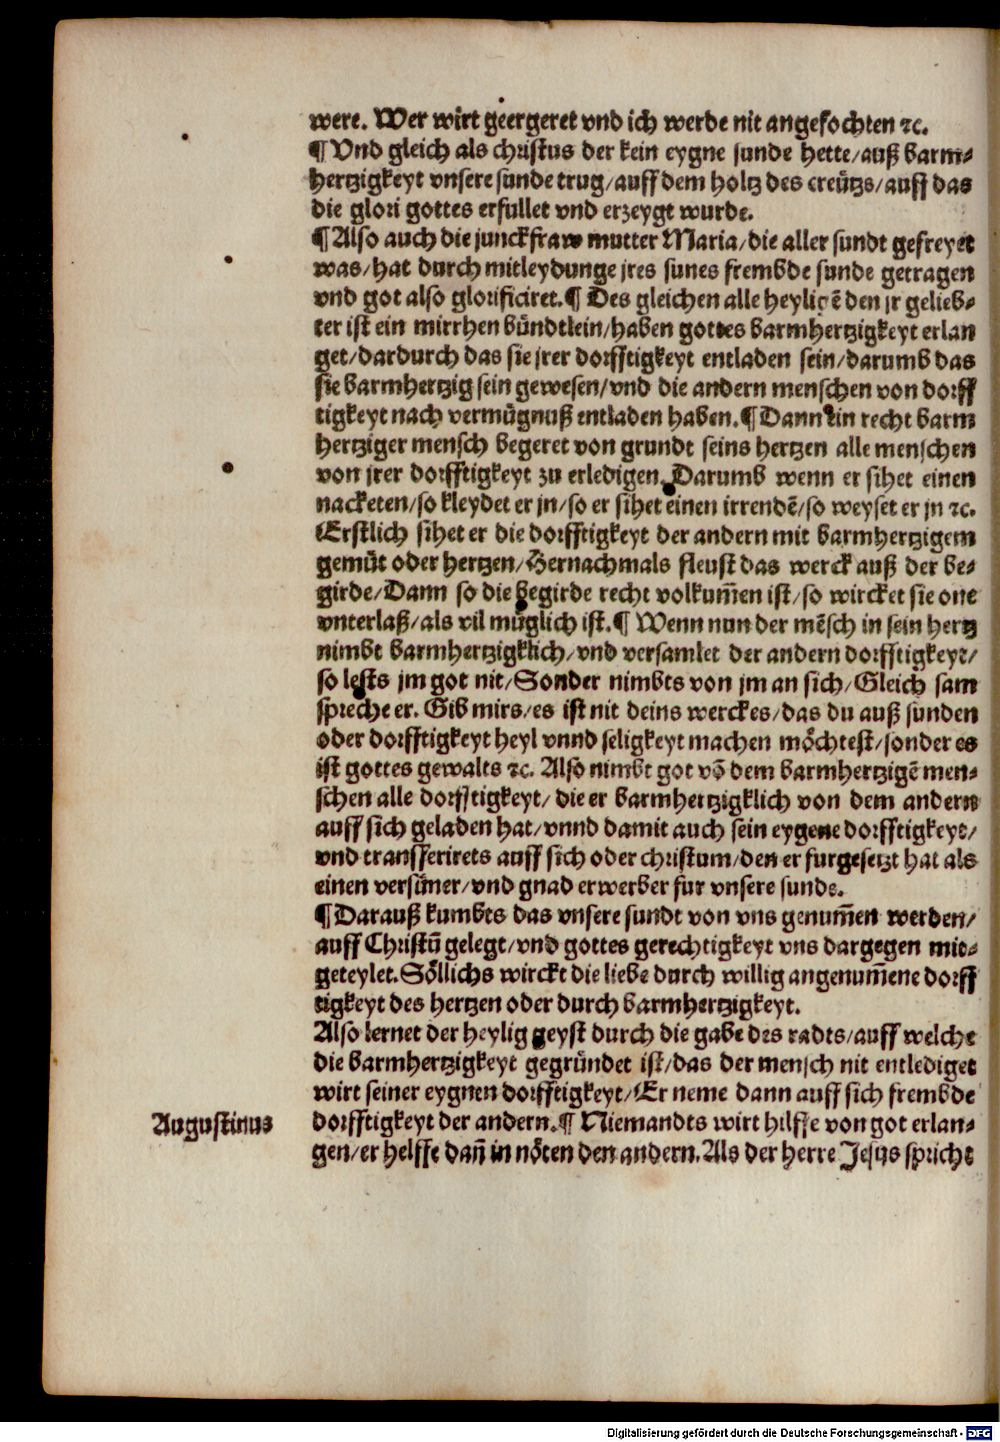 were. Wer wirt geergeret vnd ich werde nit angefochten ⁊c.
¶ Vnd gleich als christus der kein eygne sunde hette/auß barm⸗
hertzigkeyt vnsere sunde trug/auff dem holtz des creütʒs/auff das
die glori gottes erfullet vnd erzeygt wurde.
¶ Also auch die junckfraw mutter Maria/die aller sundt gefreyet
was/hat durch mitleydunge jres sunes frembde sunde getragen
vnd got also glorificiret.¶ Des gleichen alle heyligē den jr gelieb⸗
ter ist ein mirrhen bündtlein/haben gottes barmhertzigkeyt erlan
get/dardurch das sie jrer dorfftigkeyt entladen sein/darumb das
sie barmhertzig sein gewesen/vnd die andern menschen von dorff
tigkeyt nach vermügnuß entladen haben.¶ Dann ein recht barm
hertziger mensch begeret von grundt seins hertzen alle menschen
von jrer dorfftigkeyt zu erledigen. Darumb wenn er sihet einen
nacketen/so kleydet er jn/so er sihet einen irrendē/so weyset er jn ⁊c.
Erstlich sihet er die dorfftigkeyt der andern mit barmhertzigem
gemüt oder hertzen/Hernachmals fleust das werck auß der be⸗
girde/Dann so die begirde recht volkum̄en ist/so wircket sie one
vnterlaß/als vil müglich ist.¶ Wenn nun der mēsch in sein hertz
nimbt barmhertzigklich/vnd versamlet der andern dorfftigkeyt/
so lests jm got nit/Sonder nimbts von jm an sich/Gleich sam
spreche er. Gib mirs/es ist nit deins werckes/das du auß sunden
oder dorfftigkeyt heyl vnnd seligkeyt machen möchtest/sonder es
ist gottes gewalts ⁊c. Also nimbt got vō dem barmhertzigē men⸗
schen alle dorfftigkeyt/die er barmhertzigklich von dem andern
auff sich geladen hat/vnnd damit auch sein eygene dorfftigkeyt/
vnd transferirets auff sich oder christum/den er furgesetzt hat als
einen versüner/vnd gnad erwerber fur vnsere sunde.
¶ Darauß kumbts das vnsere sundt von vns genum̄en werden/
auff Christū gelegt/vnd gottes gerechtigkeyt vns dargegen mit⸗
geteylet. Söllichs wirckt die liebe durch willig angenum̄ene dorff
tigkeyt des hertzen oder durch barmhertzigkeyt.
Also lernet der heylig geyst durch die gabe des radts/auff welche
die barmhertzigkeyt gegründet ist/das der mensch nit entlediget
wirt seiner eygnen dorfftigkeyt/Er neme dann auff sich frembde
Augustinus
dorfftigkeyt der andern.¶ Niemandts wirt hilffe von got erlan⸗
gen/er helffe dan̄ in nöten den andern. Als der herre Jesus spricht
Digitalisierung gefördert durch die Deutsche Forschungsgemeinschaft - DFG